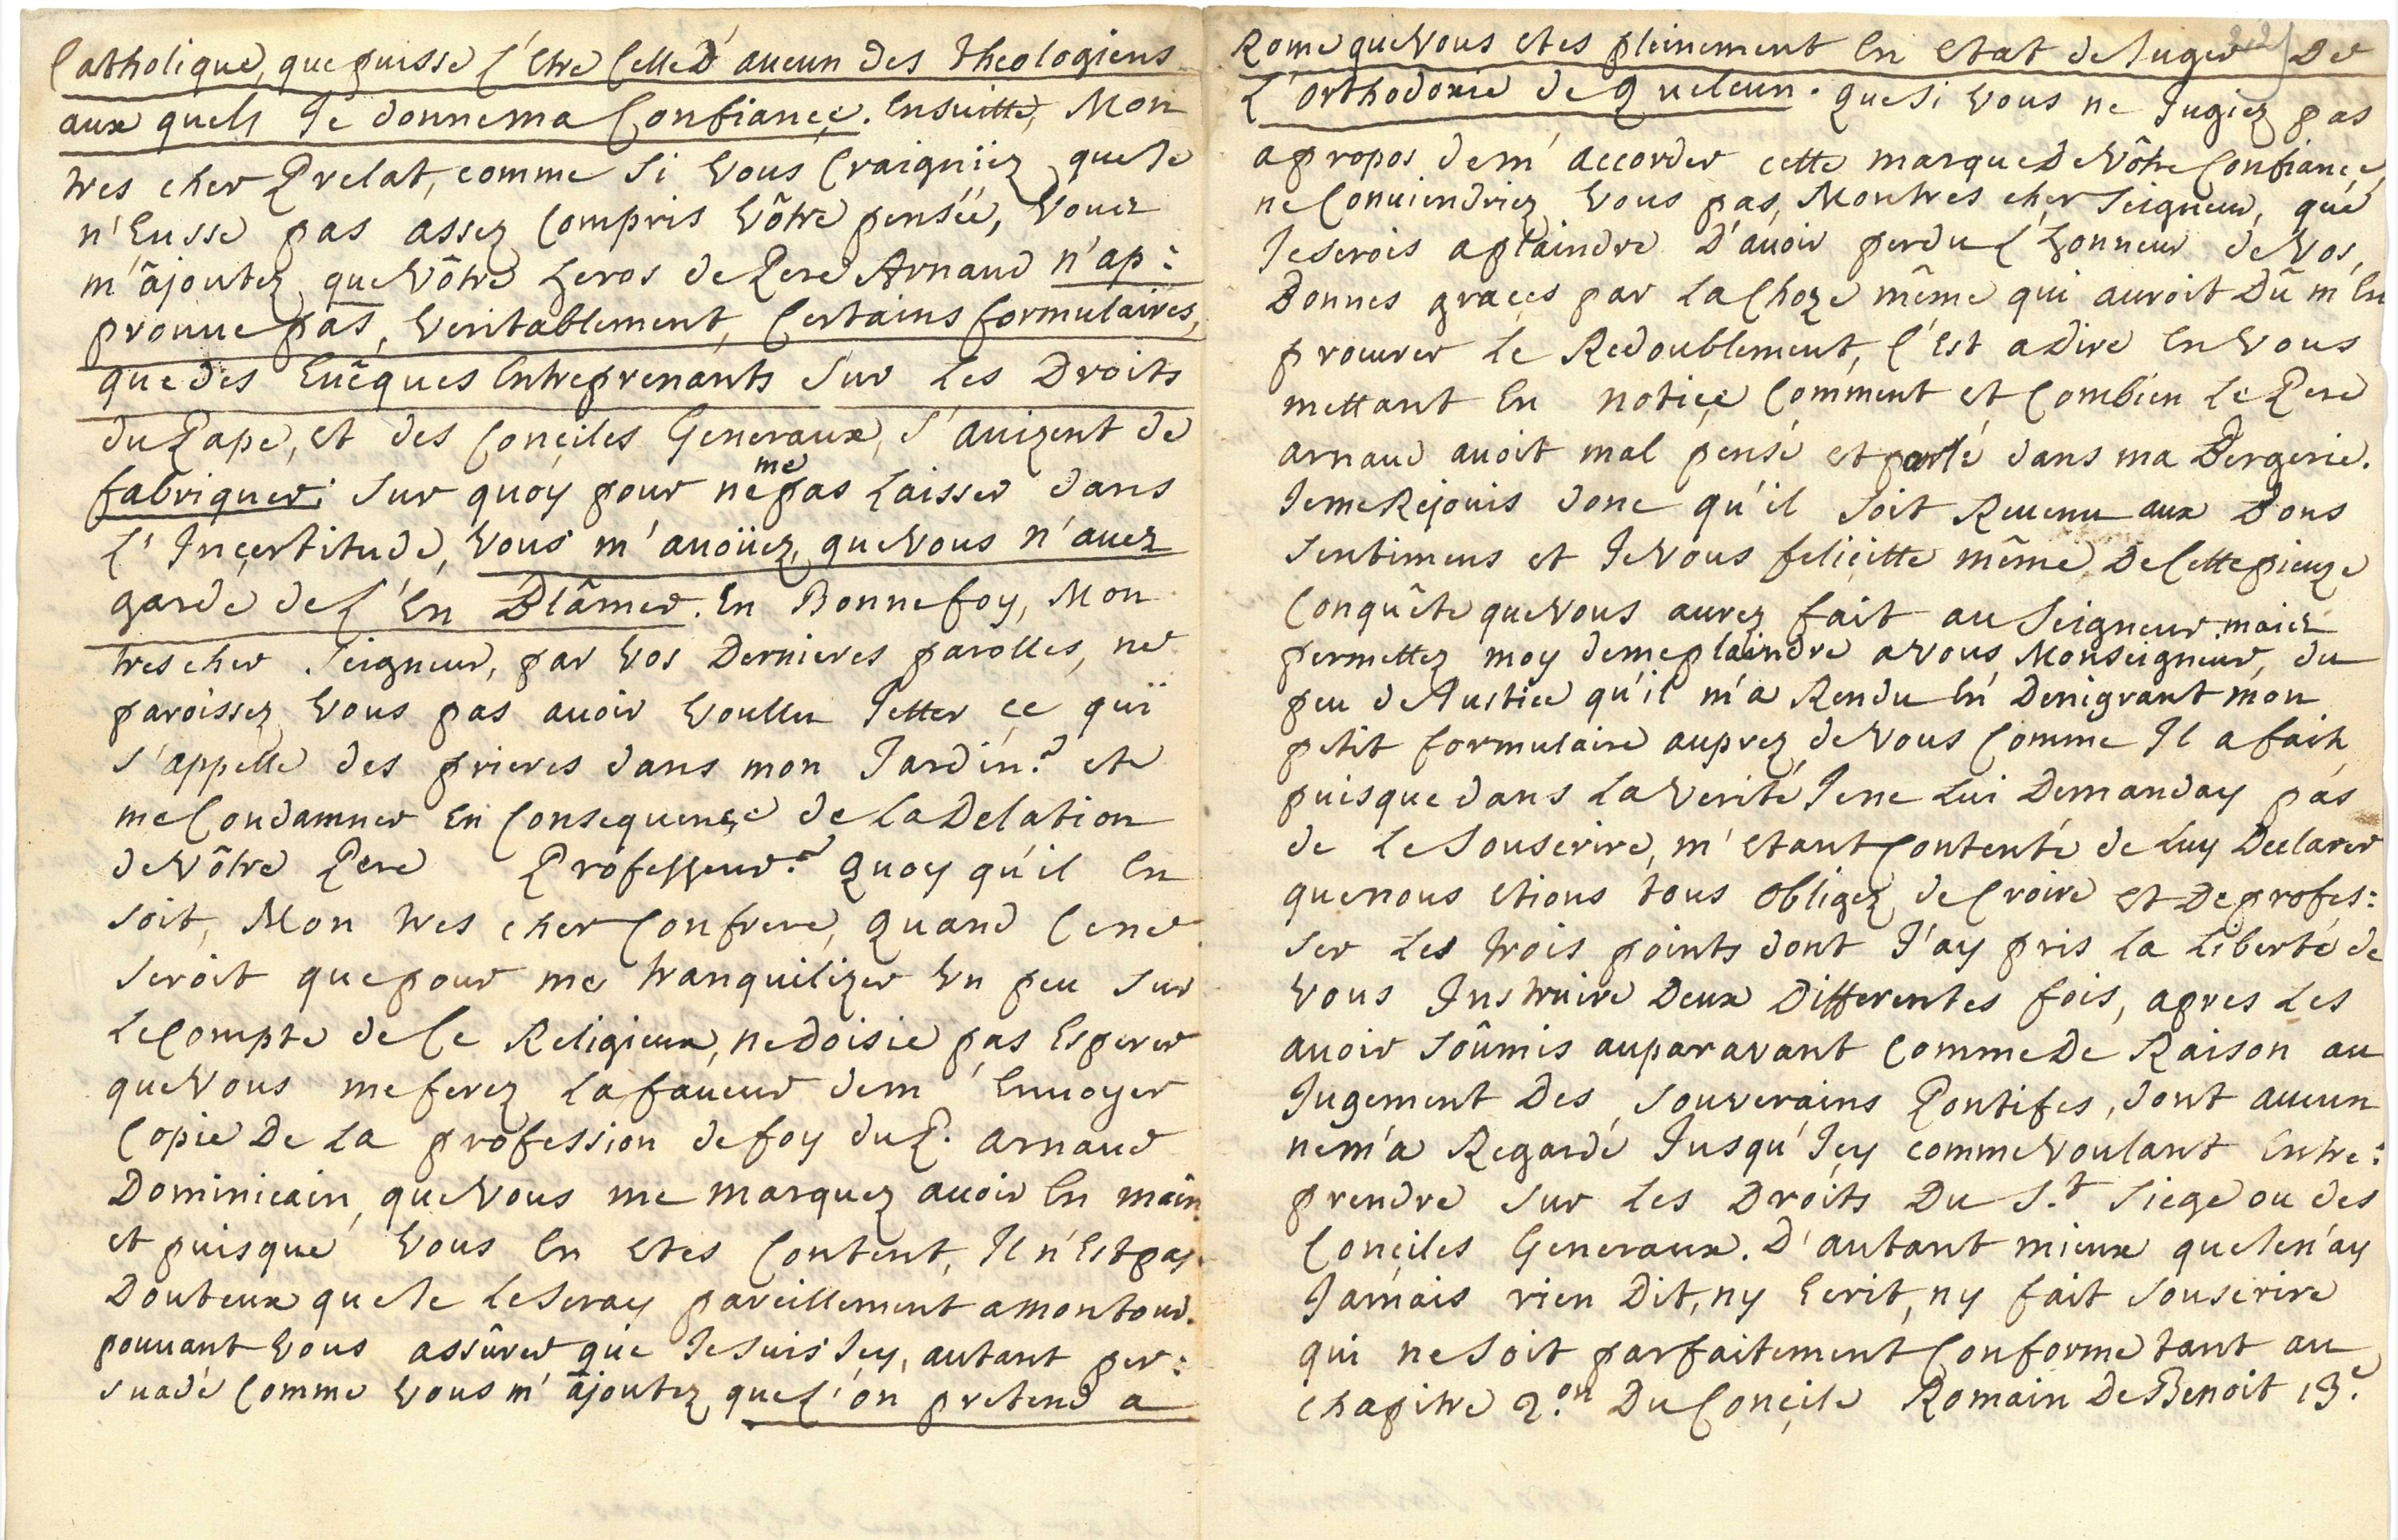 Catholique, que puisse l'Etre Celle D'aucun des theologiens
aux quels Je donne ma Confiance. Ensuitte, Mon
tres cher Prelat, comme si Vous Craigniiez que Je
n'Eusse pas assez Compris Vôtre pensée, Vous
m'âjoutez que Vôtre heros de Pere Arnaud n'ap:
prouue pas, Veritablement, Certains formulaires,
que des Euêques Entreprenants sur Les Droits
du Pape, et des Conciles Generaux, s'auizent de
fabriquer: sur quoy pour ne me pas Laisser dans
L'Incertitude, Vous m'auoüez, que Vous n'auez
garde de L'En Blâmer. En Bonne foy, Mon
tres cher Seigneur, par Vos Dernieres parolles, ne
paroissez Vous pas auoir Voullu Jetter ce qui
s'appelle des prieres dans mon Jardin? et
me Condamner En Consequence de La Delation
de Vôtre Pere Professeur? Quoy qu'il En
soit, Mon tres cher Confrere, Quand Ce ne
seroit que pour me tranquilizer Un peu sur
Le Compte de Ce Religieux, ne doisie pas Esperer
que Vous me ferez La faueur de m'Enuoyer
Copie De La profession de foy du P. Arnaud
Dominicain, que Vous me marquez auoir En main
et puisque Vous En etes Content, Il n'Est pas
Douteux que Je Le Seray pareillement a mon tour.
pouuant Vous assûrer que Je Suis Icy, autant per:
suadé Comme Vous m'âjoutez que L'on pretend a
Rome que Vous etes pleinement En etat de Juger De
L'orthodoxie de Quelcun. Que Si Vous ne Jugiez pas
a propos de m'accorder cette marque De Vôtre Confiance,
ne Conuiendriez Vous pas, Mon tres cher Seigneur, que
Je serois a plaindre D'auoir perdu L'honneur de Vos
Bonnes graces par La Choze même qui auroit Dû m'En
procurer Le Redoublement, C'Est a dire En Vous
mettant En notice Comment et Combien Le Pere
Arnaud auoit mal pensé et parlé dans ma Bergerie.
Je me Rejouis donc qu'il soit Reuenu aux Bons
Sentimens et Je Vous felicitte même De Cette pieuze
Conquête que Vous aurez fait au Seigneur. maiez
permettez moy de me plaindre a Vous Monseigneur, du
peu de Justice qu'il m'a Rendu En Denigrant mon
petit formulaire auprez de Vous Comme Il a fait,
puisque dans La Verité Je ne Lui Demanday pas
de Le Souscrire, m'etant Contenté de Luy Declarer
que nous etions tous Obligez de Croire et De profes:
ser Les trois points dont J'ay pris La Liberté de
Vous Instruire Deux Differentes fois, apres Les
auoir Soûmis auparavant Comme De Raison au
Jugement Des Souverains Pontifes, dont aucun
ne m'a Regardé Jusqu'Icy comme Voulant Entre:
prendre sur Les Droits Du S.t Siege ou des
Conciles Generaux. D'autant mieux que Je n'ay
Jamais rien Dit, ny Ecrit, ny fait Souscrire
qui ne Soit parfaitement Conforme tant au
chapitre 2.on Du Concile Romain De Benoit 13.e